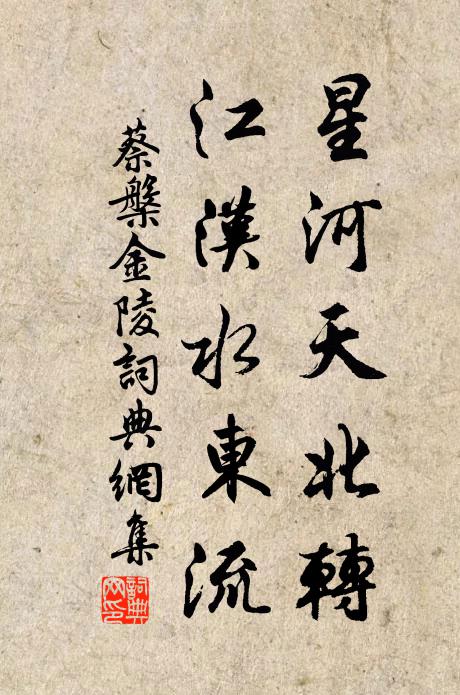 星河天北轉
江漢水東流
蔡槃金陵詞典網集
詞典網印